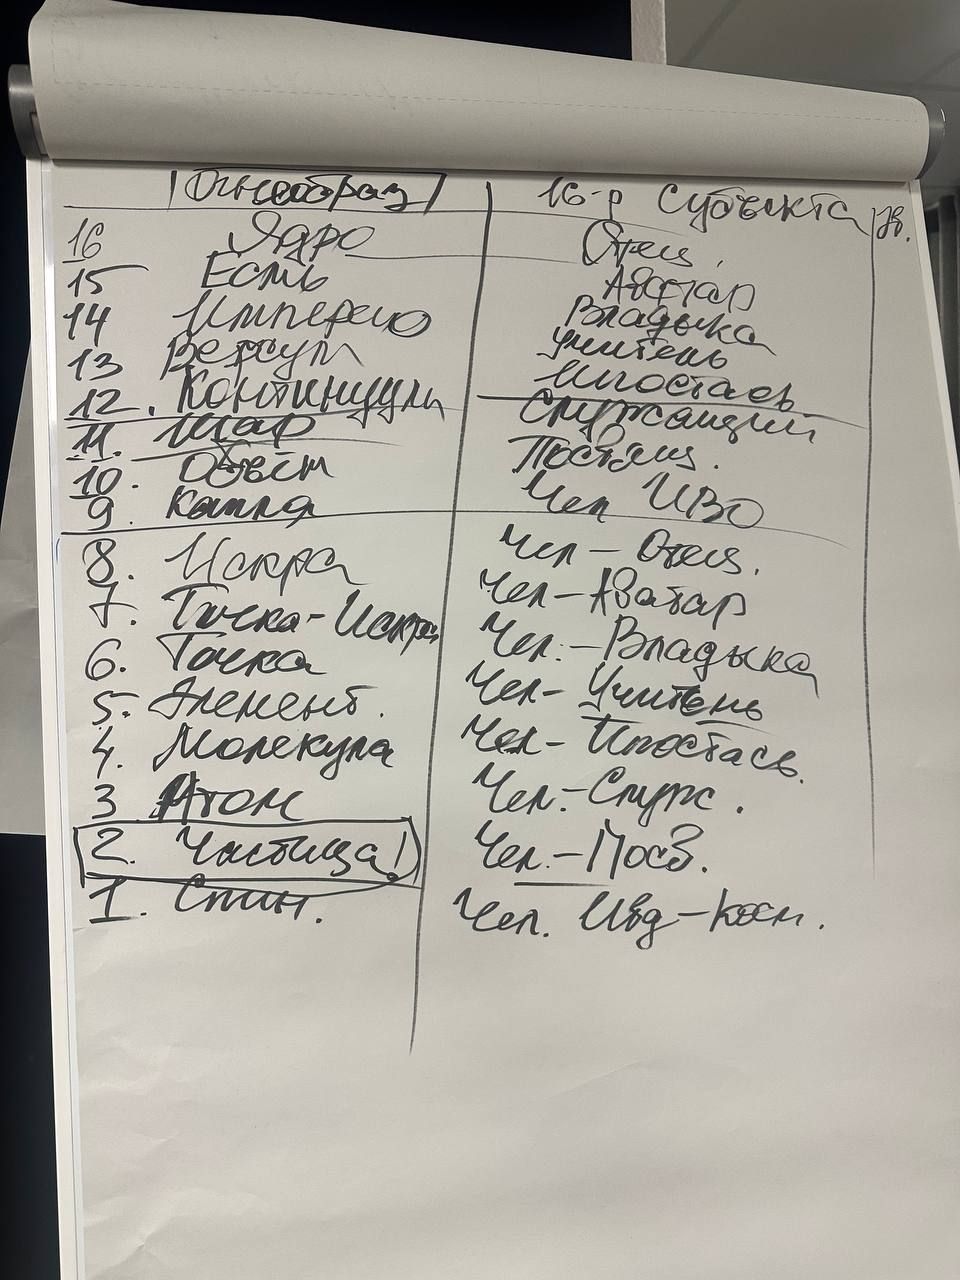 Огнеобраз 16-р Субъекта
16 Ядро Отец
15 Есмь Аватар
14 Империо Владыка
13 Версум Учитель
12. Континуум Ипостась
11. Шар Служащий
10. Объём Посвящ.
9. Капля Чел ИВО
8. Искра Чел – Отец.
7. Точка-Искра Чел – Аватар
6. Точка Чел. – Владыка
5. Элемент. Чел – Учитель
4. Молекула Чел – Ипостась.
3 Атом Чел. – Служ.
2. Частица! Чел. – Посв.
1. Спин. Чел. – косм.